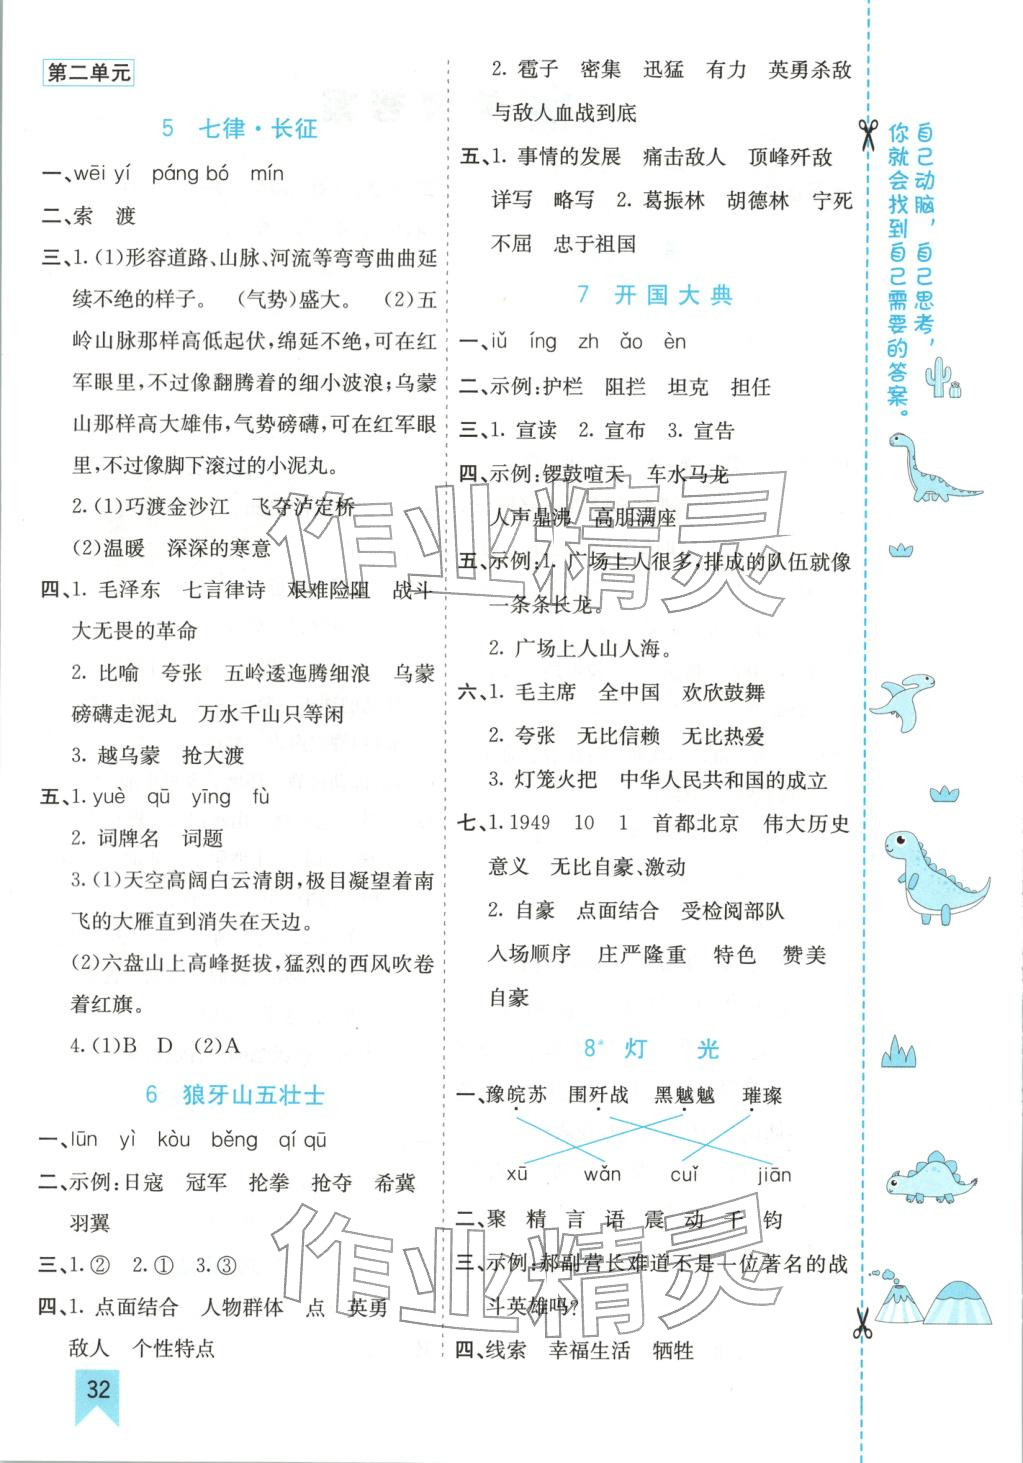 第二单元
5 七律·长征
一、wēi yí páng bó mín
二、索 渡
三、1.(1)形容道路、山脉、河流等弯弯曲曲延
续不绝的样子。 (气势)盛大。 (2)五
岭山脉那样高低起伏,绵延不绝,可在红
军眼里,不过像翻腾着的细小波浪;乌蒙
山那样高大雄伟,气势磅礴,可在红军眼
里,不过像脚下滚过的小泥丸。
2.(1)巧渡金沙江 飞夺泸定桥
(2)温暖 深深的寒意
四、1. 毛泽东 七言律诗 艰难险阻 战斗
大无畏的革命
2. 比喻 夸张 五岭逶迤腾细浪 乌蒙
磅礴走泥丸 万水千山只等闲
3. 越乌蒙 抢大渡
五、1. yuè qū yīng fù
2. 词牌名 词题
3.(1)天空高阔白云清朗,极目凝望着南
飞的大雁直到消失在天边。
(2)六盘山上高峰挺拔,猛烈的西风吹卷
着红旗。
4.(1)B D (2)A
6 狼牙山五壮士
一、lūn yì kòu běng qí qū
二、示例:日寇 冠军 抡拳 抢夺 希冀
羽翼
三、1.② 2.① 3.③
四、1. 点面结合 人物群体 点 英勇
敌人 个性特点
32
2. 雹子 密集 迅猛 有力 英勇杀敌
与敌人血战到底
五、1. 事情的发展 痛击敌人 顶峰歼敌
详写 略写 2. 葛振林 胡德林 宁死
不屈 忠于祖国
7 开国大典
一、iǔ íng zh ǎo èn
二、示例:护栏 阻拦 坦克 担任
三、1. 宣读 2. 宣布 3. 宣告
四、示例:锣鼓喧天 车水马龙
人声鼎沸 高朋满座
五、示例:1. 广场上人很多,排成的队伍就像
一条条长龙。
2. 广场上人山人海。
六、1. 毛主席 全中国 欢欣鼓舞
2. 夸张 无比信赖 无比热爱
3. 灯笼火把 中华人民共和国的成立
七、1.1949 10 1 首都北京 伟大历史
意义 无比自豪、激动
2. 自豪 点面结合 受检阅部队
入场顺序 庄严隆重 特色 赞美
自豪
8* 灯 光
一、豫皖苏 围歼战 黑魆魆 璀璨
xū wǎn cuǐ jiān
二、聚 精 言 语 震 动 千 钧
三、示例:郝副营长难道不是一位著名的战
斗英雄吗?
四、线索 幸福生活 牺牲
自己动脑,自己思考,
你就会找到自己需要的答案。
作业精灵
作业精灵